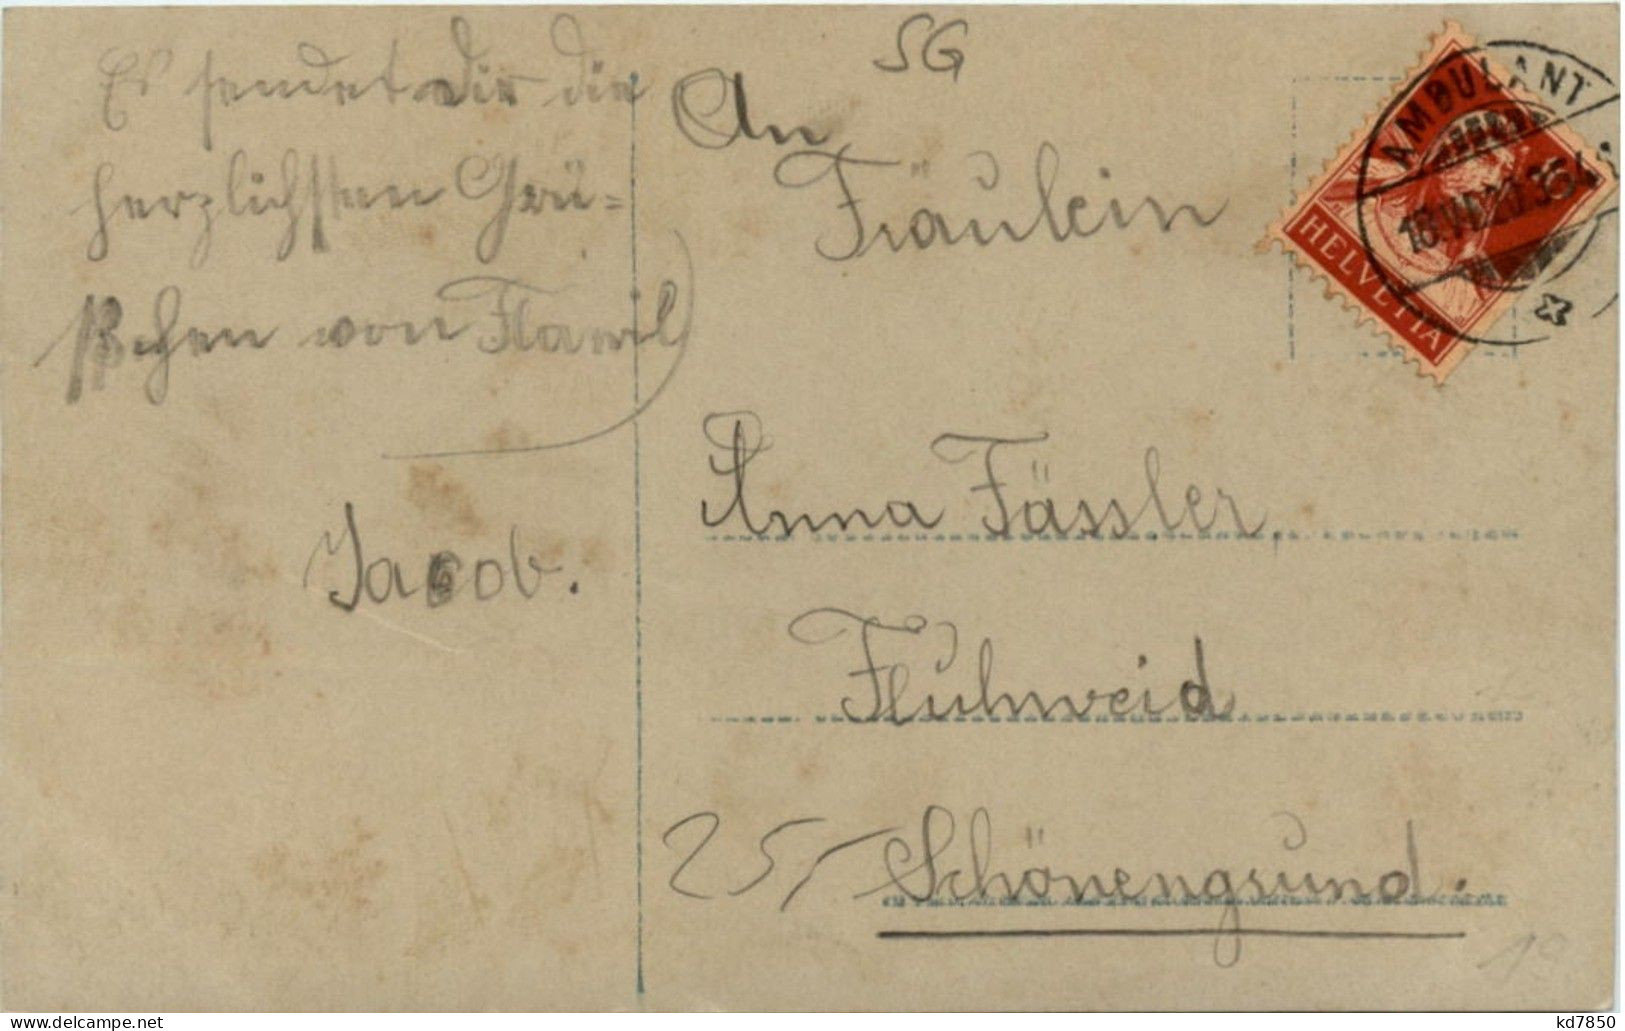 SG
Es sendet dir die
herzlichsten Grü=
ßchen von Flawil
Jacob.
An
Fräulein
Anna Fässler
Fluhweid
25,- Schönengrund.
19
AMBULANT
HELVETIA
kd7850